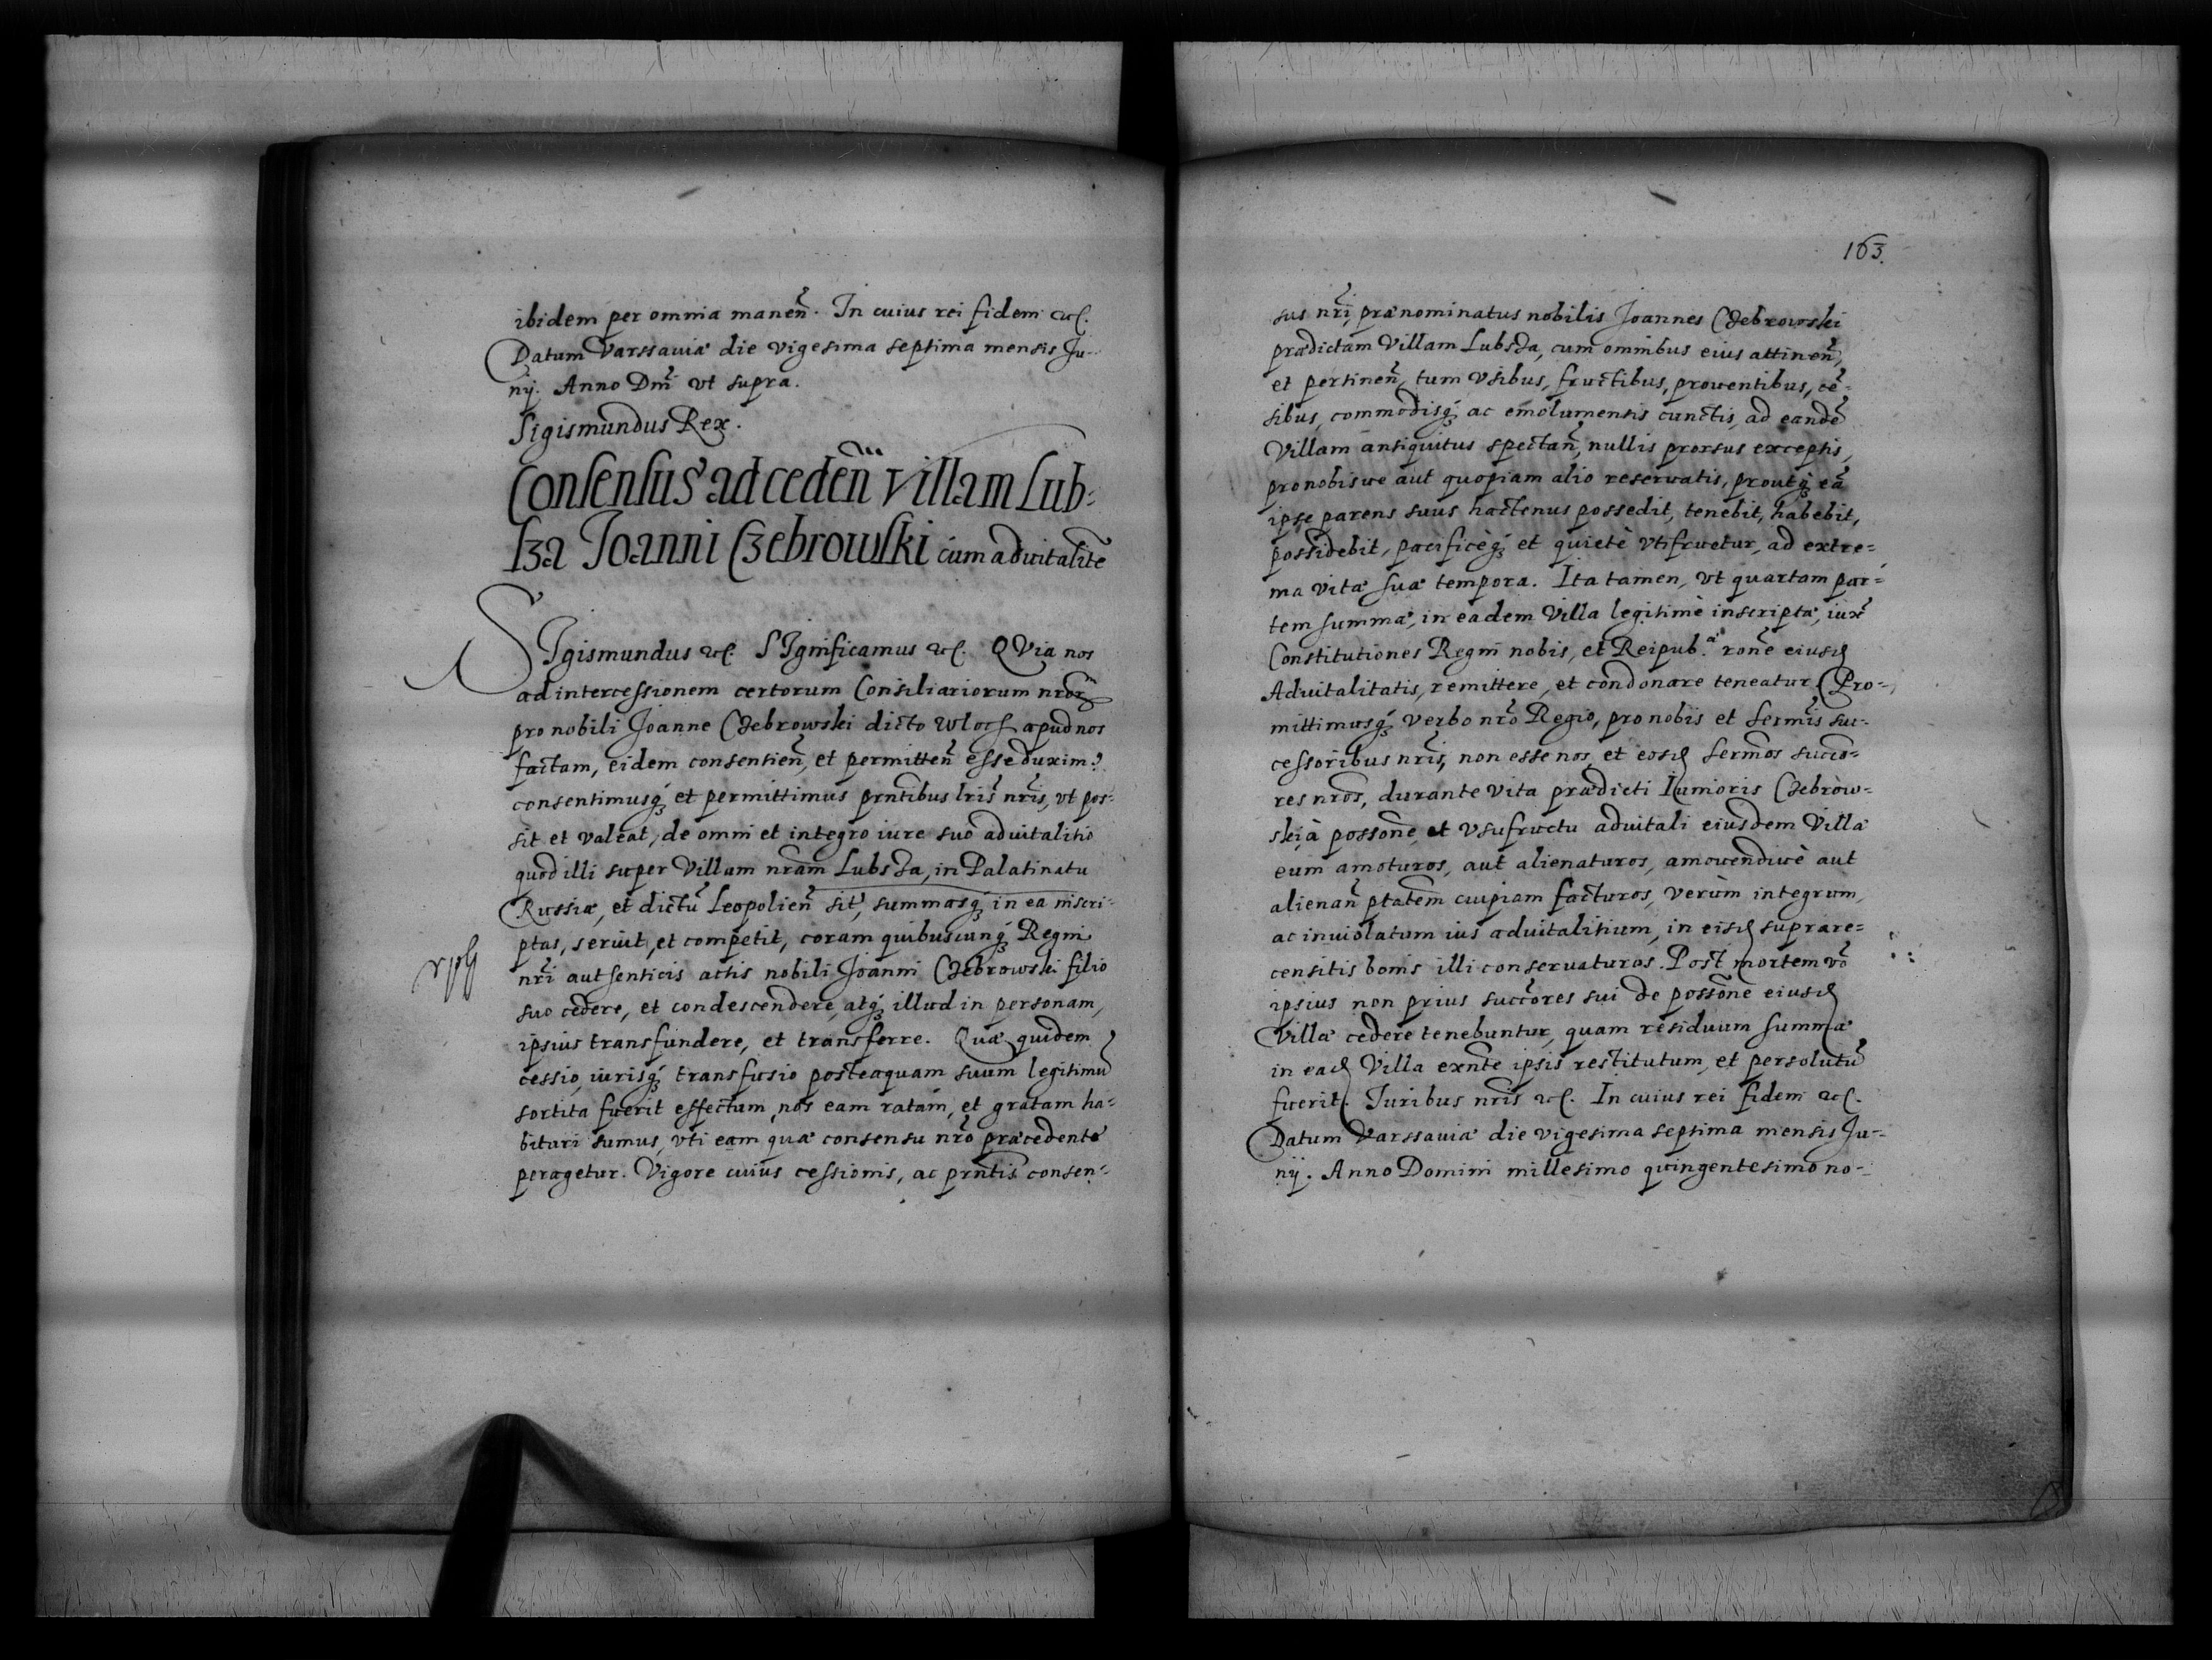 ibidem per omnia manen̄. In cuius rei fidem etc.
Datum Varssauiæ die vigesima septima mensis Ju-
nij. Anno Dni̅ vt supra.
Sigismundus Rex.
Consensus ad ceden̄ Villam Lub-
sza Joanni Czebrowski cum aduitalitē
SIgismundus etc. SIgnificamus etc. QVia nos
ad intercessionem certorum Consiliariorum nr̄or̄
pro nobili Joanne Czebrowski dicto Wloch apud nos
factam, eidem consentien̄, et permitten̄ esse duxim9
consentimusq3 et permittimus pr̄ntibus lr̄is nr̄is, vt pos-
sit et valeat, de omni et integro iure suo aduitalitio
quod illi super Villam nr̄am Lubsza, in Palatinatu
Russiæ, et dictū Leopolien̄ sit', summasq3 in ea inscri-
ptas, seruit, et competit, coram quibuscunq3 Regni
nr̄i autsenticis actis nobili Joanni Czebrowski filio
suo cedere, et condescendere, atq3 illud in personam,
ipsius transfundere, et transferre. Quæ quidem
cessio, iurisq3 transfusio posteaquam suum legitimū
sortita fuerit effectum, nos eam ratam, et gratam ha-
bituri sumus, vti eam quæ consensu nr̄o præcedente
peragetur. Vigore cuius cessionis, ac pr̄ntis consen-
163.
sus nr̄i, prænominatus nobilis Joannes Czebrowski
prædictam Villam Lubsza, cum omnibus eius attinen̄,
et pertinen̄, tum vsibus, fructibus, prouentibus, cē-
sibus, commodisq3 ac emolumentis cunctis, ad eandē
Villam antiquitus spectan̄, nullis prorsus exceptis,
pro nobisue aut quopiam alio reseruatis, proutq3 eā
ipse parens suus hactenus possedit, tenebit, habebit,
possidebit, pacificèq3 et quietè vtifruetur, ad extre-
ma vitæ suæ tempora. Ita tamen, vt quartam par-
tem summæ, in eadem Villa legitimè inscriptæ, iux̄
Constitutiones Regni nobis, et Reipub.æ ron̄e eiusd
Aduitalitatis, remittere, et condonare teneatur. Pro-
mittimusq3 verbo nr̄o Regio, pro nobis et Serm̄is suc-
cessoribus nr̄is, non esse nos, et eosd Serm̄os succō-
res nr̄os, durante vita prædicti Iunioris Czebrow-
ski, à possōne, et vsufructu aduitali eiusdem Villæ
eum amoturos, aut alienaturos, amouendiue aut
alienan̄ ptātem cuipiam facturos, verùm integrum,
ac inuiolatum ius aduitalitium, in eisd suprare-
censitis bonis illi conseruaturos. Post mortem vō
ipsius non prius succōres sui de possōne eiusd
Villæ cedere tenebuntur, quam residuum summæ
in ead Villa exn̄te ipsis restitutum, et persolutū
fuerit. Iuribus nr̄is etc. In cuius rei fidem etc.
Datum Varssauiæ die vigesima septima mensis Ju-
nij. Anno Domini millesimo quingentesimo no-